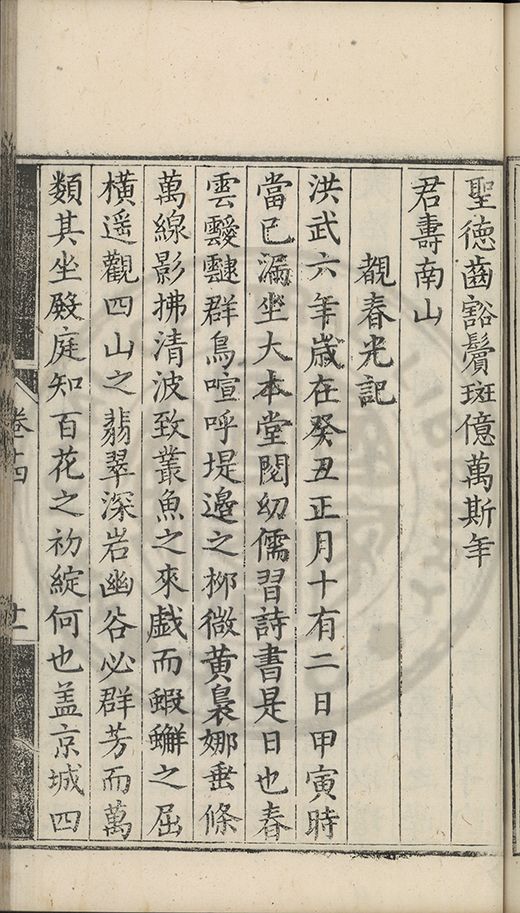 聖德齒豁鬢斑億萬斯年
君壽南山
觀春光記
洪武六年歲在癸丑正月十有二日甲寅時
當巳漏坐大本堂閱幼儒習詩書是日也春
雲靉靆群鳥喧呼堤邊之柳微黃裊娜垂條
萬線影拂清波致叢魚之來戲而鰕蠏之屈
橫遥觀四山之翡翠深岩幽谷必群芳而萬
類其坐殿庭知百花之初綻何也盖京城四
卷十四
十一